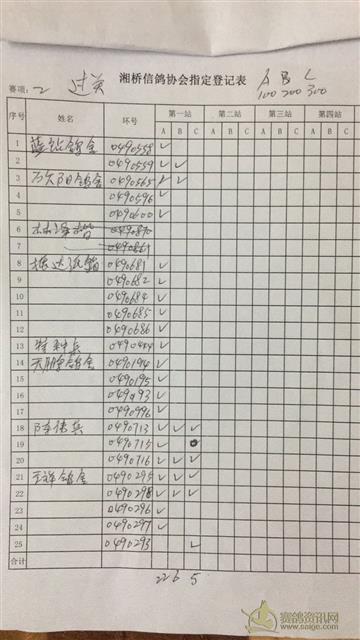 湘桥信鸽协会指定登记表
赛项: 2 过关 A B C
100 200 300
序号 姓名 环号 第一站 第二站 第三站 第四站
A B C A B C A B C A B C
1 蓝钻鸽舍 0490558 ✓
2 0490559 ✓ ✓
3 0490565 ✓ ✓
4 0490596 ✓
5 0490600 ✓
6 0490870
7 0490861
8 0490681 ✓
9 0490682 ✓
10 0490684 ✓
11 0490685 ✓
12 0490686 ✓
13 特种兵 0490444 ✓
14 天朋鸽舍 0490194 ✓
15 0490195 ✓
16 0490193 ✓
17 0490996 ✓
18 陈伟兵 0490713 ✓ ✓ ✓
19 0490715 ✓
20 0490716 ✓ ✓ ✓
21 王祥鸽舍 0490295 ✓ ✓ ✓
22 0490298 ✓ ✓ ✓
23 0490296 ✓
24 0490297 ✓
25 0490293 ✓
合计
22 6 5
赛鸽资讯网
www.saige.com